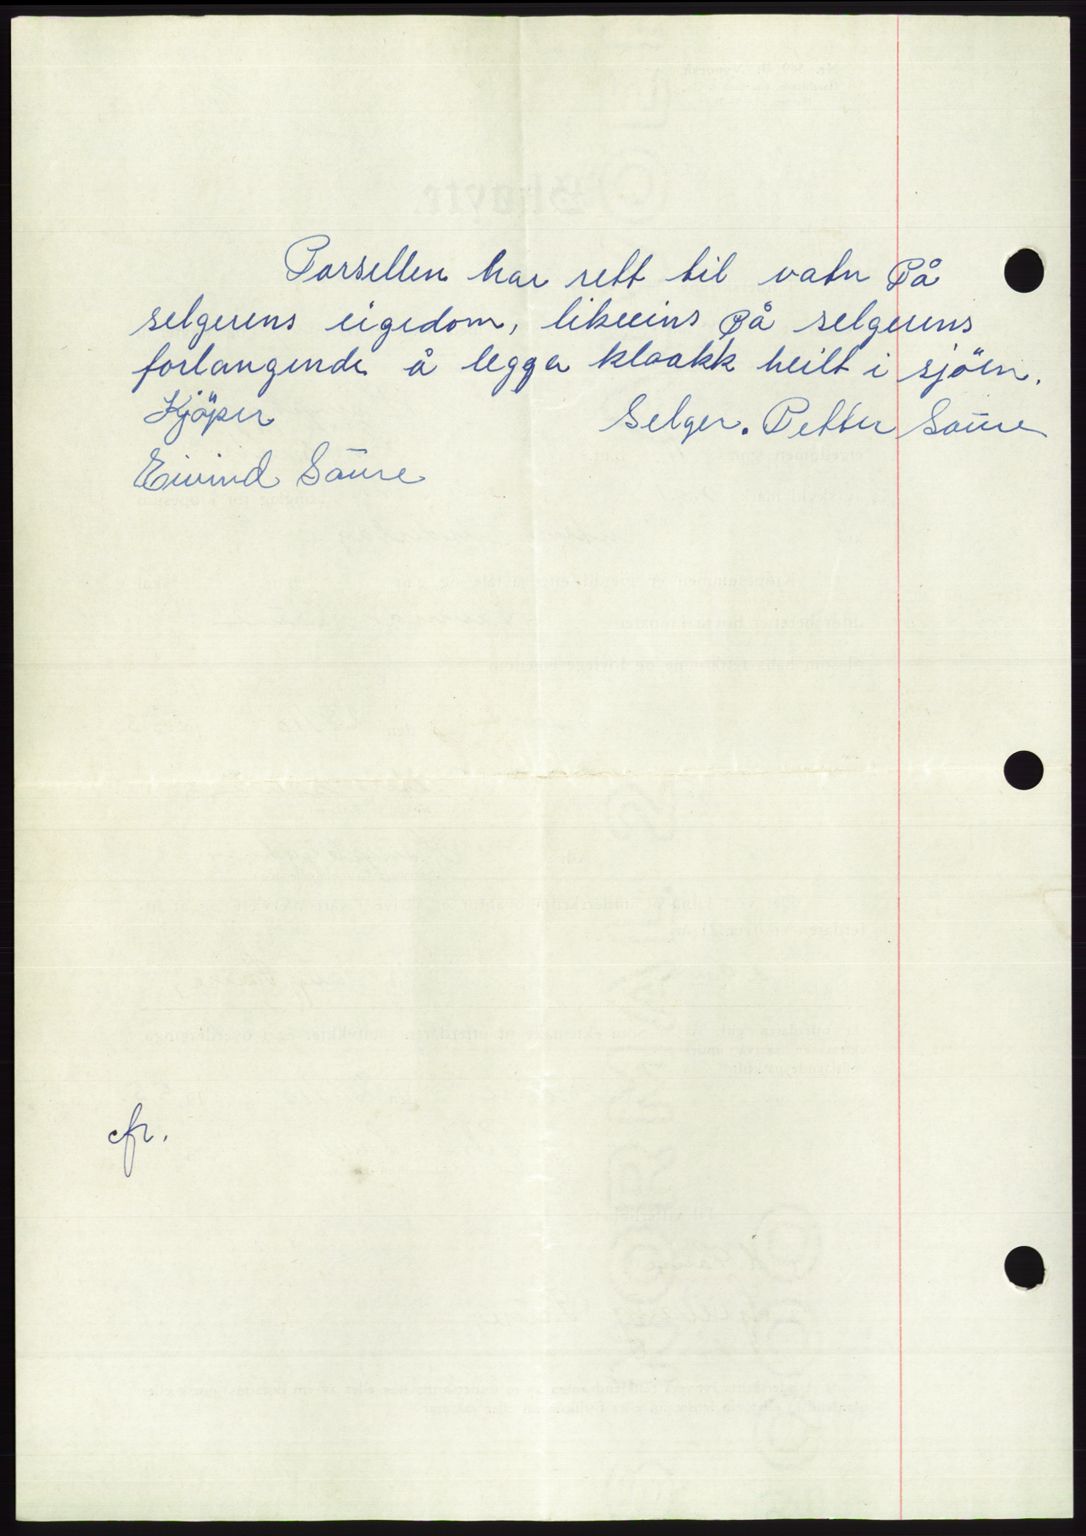 Parsellen har rett til vatn på
selgerens eigedom, likeeins på selgerens
forlangende å legga kloakk heilt i sjöen.
Kjöper Selger. Petter Saure
Eivind Saure
cfr.